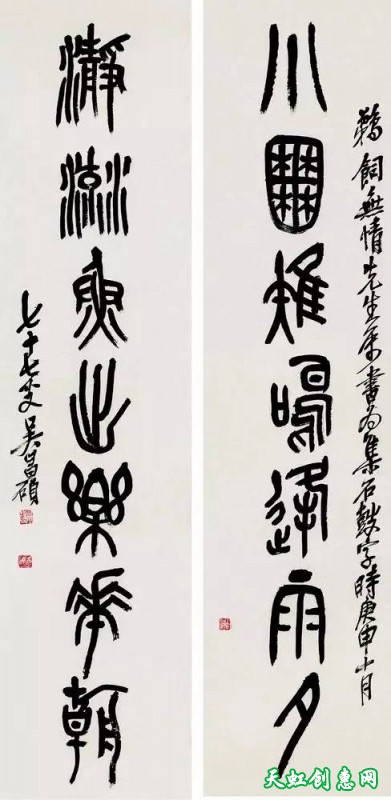 鵜飼無情先生屬書為集石鼓字時庚申十月
小囿雉鳴逢雨夕
瀞流魚出樂華朝
七十七叟吳昌碩
天虹创惠网